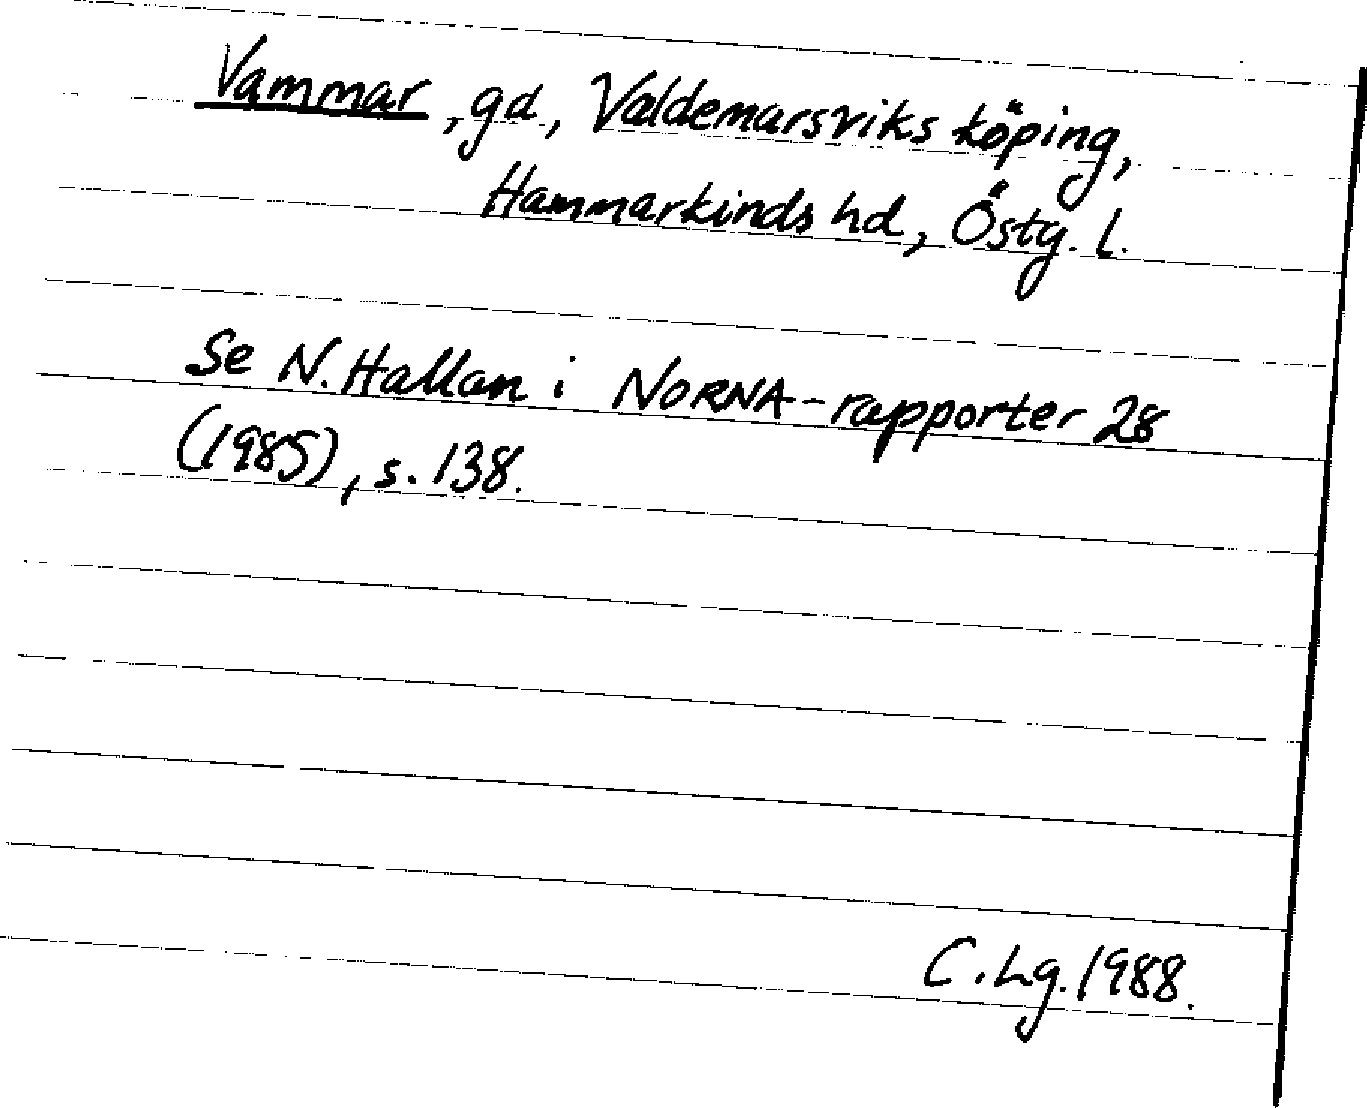 Vammar, gd, Valdemarsviks köping,
Hammarkinds hd, Östg. l.
Se N. Hallan i NORNA-rapporter 28
(1985), s. 138.
C. Lg. 1988.